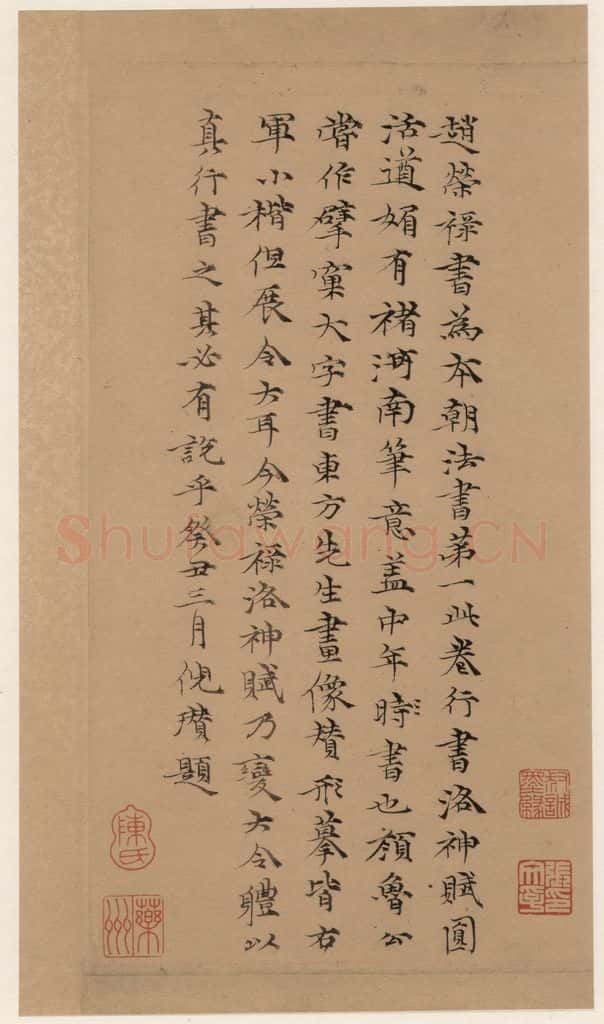 趙榮祿書為本朝法書第一此卷行書洛神賦圓
活遒媚有褚河南筆意盖中年時書也顏魯公
嘗作擘窠大字書東方先生畫像贊形摹皆右
軍小楷但展令大耳今榮祿洛神賦乃變大令體以
真行書之其必有說乎癸丑三月倪瓚題
陳氏
蘂州
Shufawang.CN